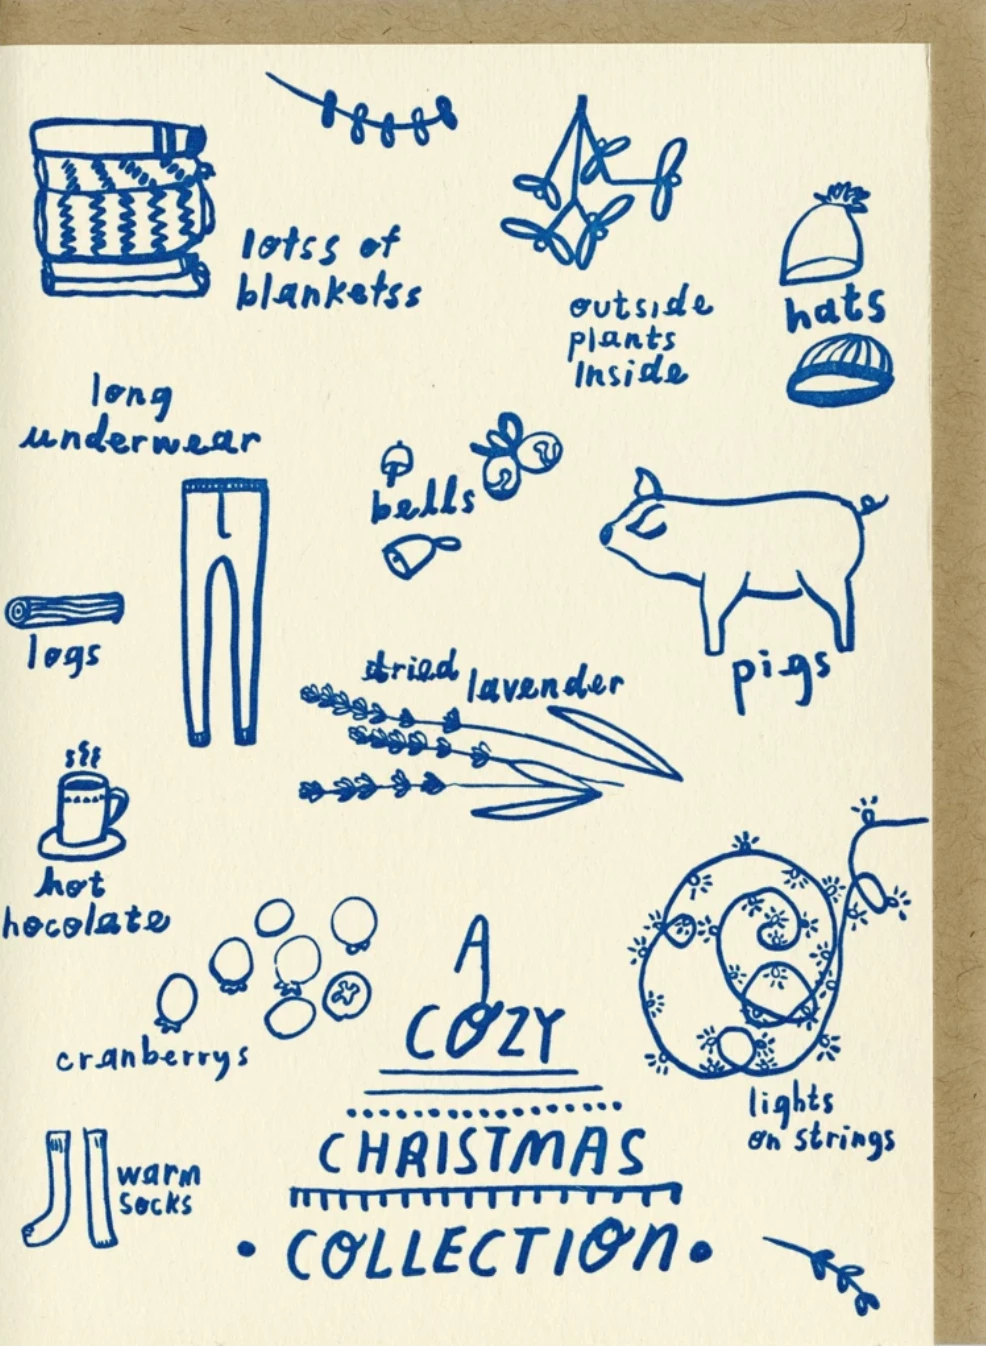 lotss of
blanketss
outside
plants
Inside
hats
long
underwear
bells
pigs
logs
dried lavender
hot
hocolate
cranberrys
A
COZY
CHRISTMAS
COLLECTION
lights
on strings
warm
socks